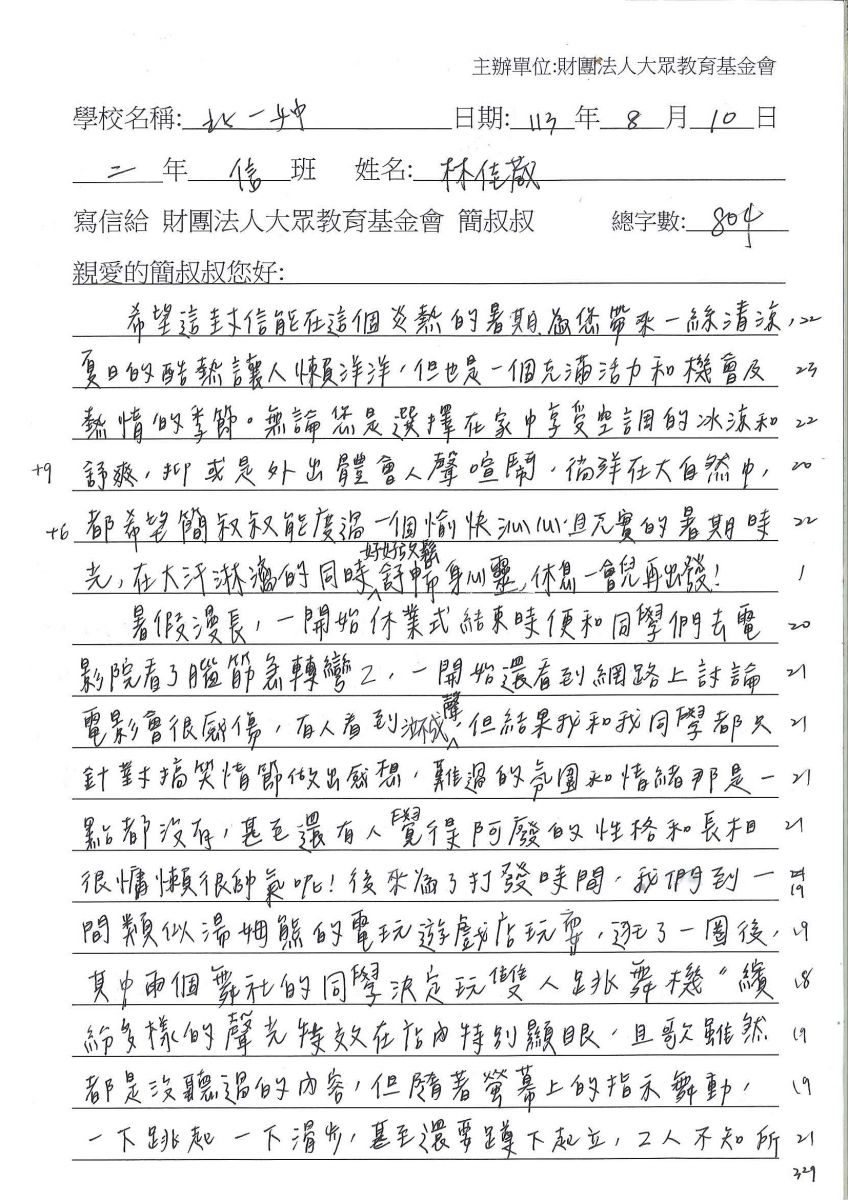 主辦單位:財團法人大眾教育基金會
學校名稱: 北一女中 日期: 113 年 8 月 10 日
二 年 信 班 姓名: 林佳葳
寫信給 財團法人大眾教育基金會 簡叔叔 總字數: 804
親愛的簡叔叔您好:
希望這封信能在這個炎熱的暑期,為您帶來一絲清涼, 22
夏日的酷熱讓人懶洋洋,但也是一個充滿活力和機會及 23
熱情的季節。無論您是選擇在家中享受空調的冰涼和 22
+9 舒爽,抑或是外出體會人聲喧鬧,徜徉在大自然中, 20
+6 都希望簡叔叔能度過一個愉快且充實的暑期時 22
好好放鬆
光,在大汗淋漓的同時舒暢身心靈,休息一會兒再出發! 1
暑假漫長,一開始休業式結束時便和同學們去電 20
影院看了腦筋急轉彎2,一開始還看到網路上討論 21
電影會很感傷,有人看到泣不成聲,但結果我和我同學都只 21
針對搞笑情節做出感想,難過的氛圍和情緒那是一 21
點都沒有,甚至還有人覺得阿廢的性格和長相 21
很慵懶很帥氣呢!後來為了打發時間,我們到一 19
間類似湯姆熊的電玩遊戲店玩耍,逛了一圈後, 19
其中兩個舞社的同學決定玩雙人跳舞機,繽 18
紛多樣的聲光特效在店內特別顯眼,且歌雖然 19
都是沒聽過的內容,但隨著螢幕上的指示舞動, 19
一下跳起一下滑步,甚至還要蹲下起立,2人不知所 21
329